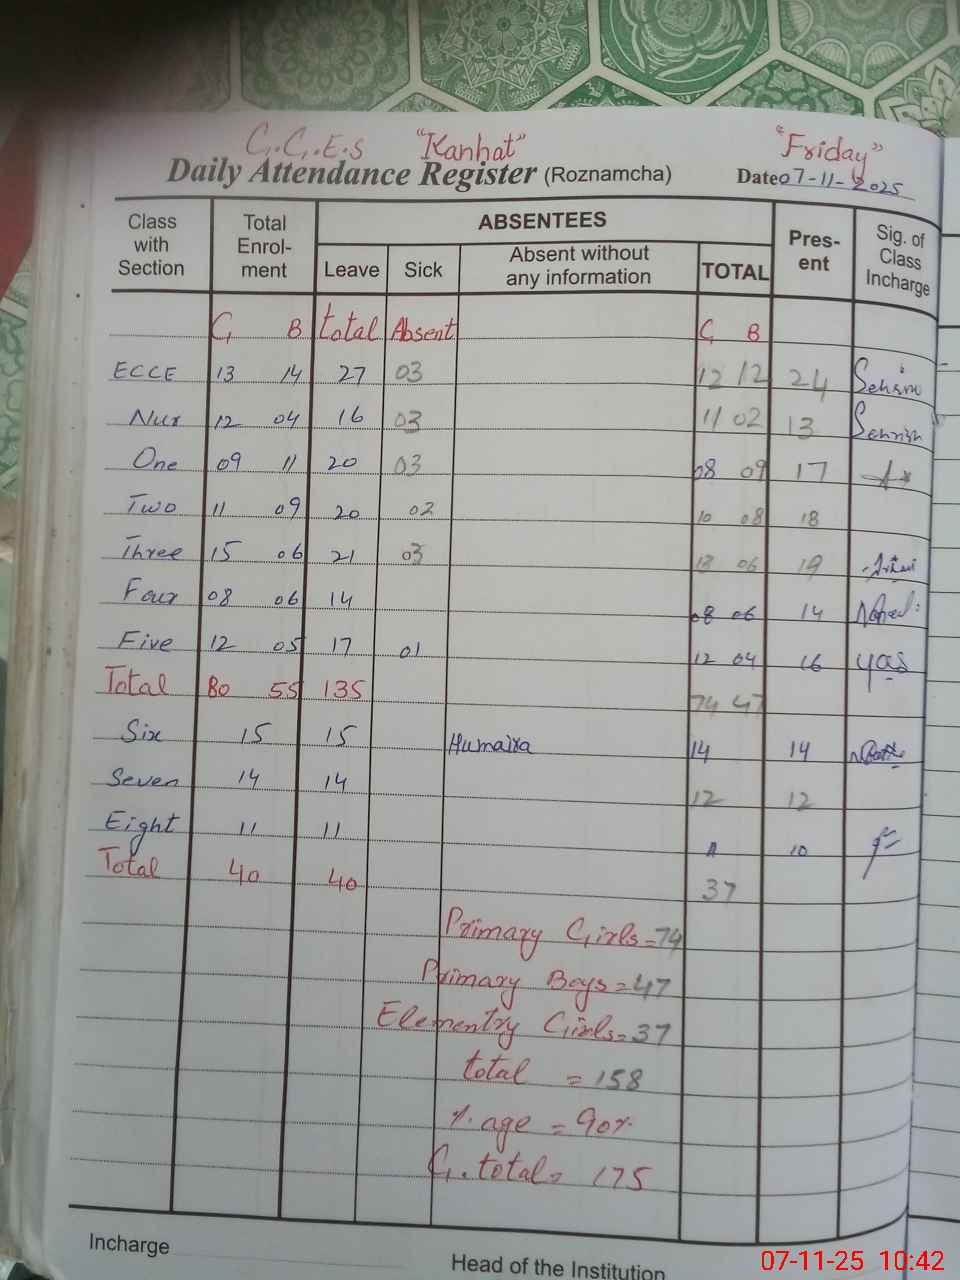 G.G.E.S "Kanhat" "Friday"
Daily Attendance Register (Roznamcha) Date 07-11-2025
Class with Section Total Enrol-ment ABSENTEES Pres-ent Sig. of Class Incharge
Leave Sick Absent without any information TOTAL
G B total Absent G B
ECCE 13 14 27 03 12 12 24
Nur 12 04 16 03 11 02 13
One 09 11 20 03 08 09 17
Two 11 09 20 02 10 08 18
Three 15 06 21 03 13 06 19
Four 08 06 14 08 06 14
Five 12 05 17 01 12 04 16 yas
Total 80 55 135 74 47
Six 15 15 Humaira 14 14
Seven 14 14 12 12
Eight 11 11 10
Total 40 40 37
Primary Girls=74
Primary Boys=47
Elementry Girls=37
total = 158
%age = 90%
G.total= 175
Incharge
Head of the Institution
07-11-25 10:42